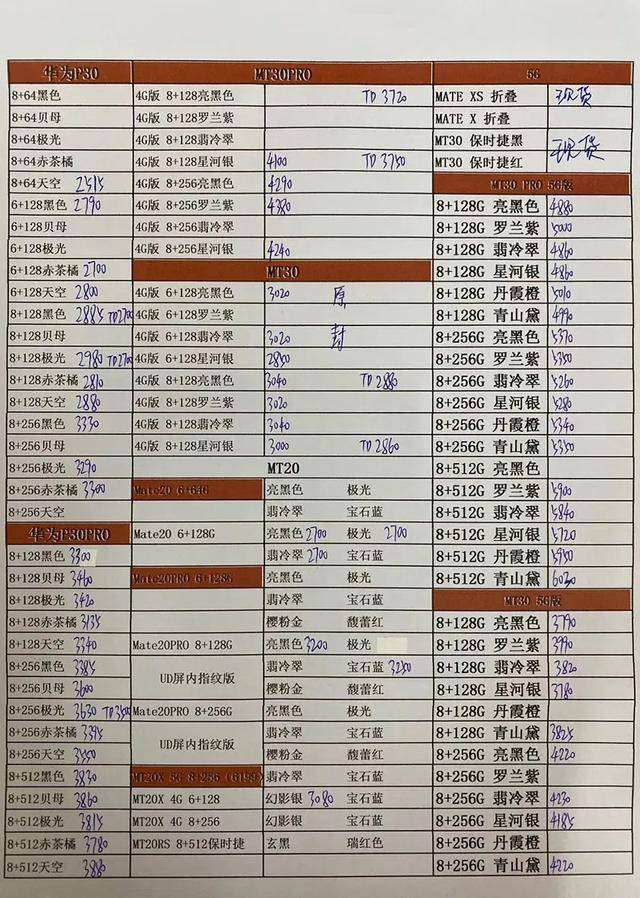 华为P30
8+64黑色
8+64贝母
8+64极光
8+64赤茶橘
8+64天空 2515
6+128黑色 2790
6+128贝母
6+128极光
6+128赤茶橘 2700
6+128天空 2800
8+128黑色 2885 TD2700
8+128贝母
8+128极光 2980 TD2700
8+128赤茶橘 2810
8+128天空 2880
8+256黑色 3330
8+256贝母
8+256极光 3290
8+256赤茶橘 3300
8+256天空
华为P30PRO
8+128黑色 3300
8+128贝母 3460
8+128极光 3420
8+128赤茶橘 3135
8+128天空 3340
8+256黑色 3385
8+256贝母 3600
8+256极光 3630 TD3500
8+256赤茶橘 3395
8+256天空 3550
8+512黑色 3830
8+512贝母 3860
8+512极光 3815
8+512赤茶橘 3780
8+512天空 3880
MT30PRO
4G版 8+128亮黑色 TD 3720
4G版 8+128罗兰紫
4G版 8+128翡冷翠
4G版 8+128星河银 4100 TD 3750
4G版 8+256亮黑色 4290
4G版 8+256罗兰紫 4380
4G版 8+256翡冷翠
4G版 8+256星河银 4240
MT30
4G版 6+128亮黑色 3020 原
4G版 6+128罗兰紫
4G版 6+128翡冷翠 3020 封
4G版 6+128星河银 2850
4G版 8+128亮黑色 3040 TD 2880
4G版 8+128罗兰紫 3020
4G版 8+128翡冷翠 3040
4G版 8+128星河银 3000 TD 2860
MT20
Mate20 6+64G 亮黑色 极光
翡冷翠 宝石蓝
Mate20 6+128G 亮黑色 2700 极光 2700
翡冷翠 2700 宝石蓝
Mate20PRO 6+128G 亮黑色 极光
翡冷翠 宝石蓝
樱粉金 馥蕾红
Mate20PRO 8+128G 亮黑色 3200 极光
UD屏内指纹版 翡冷翠 宝石蓝 3250
樱粉金 馥蕾红
Mate20PRO 8+256G 亮黑色 极光
UD屏内指纹版 翡冷翠 宝石蓝
樱粉金 馥蕾红
MT20X 5G 8+256 (6199) 翡冷翠 宝石蓝
MT20X 4G 6+128 幻影银 3080 宝石蓝
MT20X 4G 8+256 幻影银 宝石蓝
MT20RS 8+512保时捷 玄黑 瑞红色
5G
MATE XS 折叠 现货
MATE X 折叠
MT30 保时捷黑 现货
MT30 保时捷红
MT30 PRO 5G版
8+128G 亮黑色 4880
8+128G 罗兰紫 5000
8+128G 翡冷翠 4860
8+128G 星河银 4860
8+128G 丹霞橙 5010
8+128G 青山黛 4990
8+256G 亮黑色 5370
8+256G 罗兰紫 5350
8+256G 翡冷翠 5260
8+256G 星河银 5280
8+256G 丹霞橙 5340
8+256G 青山黛 5350
8+512G 亮黑色
8+512G 罗兰紫 5900
8+512G 翡冷翠 5840
8+512G 星河银 5720
8+512G 丹霞橙 5950
8+512G 青山黛 6030
MT30 5G版
8+128G 亮黑色 3790
8+128G 罗兰紫 3990
8+128G 翡冷翠 3820
8+128G 星河银 3780
8+128G 丹霞橙
8+128G 青山黛 3825
8+256G 亮黑色 4220
8+256G 罗兰紫
8+256G 翡冷翠 4230
8+256G 星河银 4185
8+256G 丹霞橙
8+256G 青山黛 4220